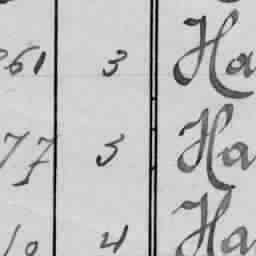 261 3 Ha
77 5 Ha
10 4 Ha